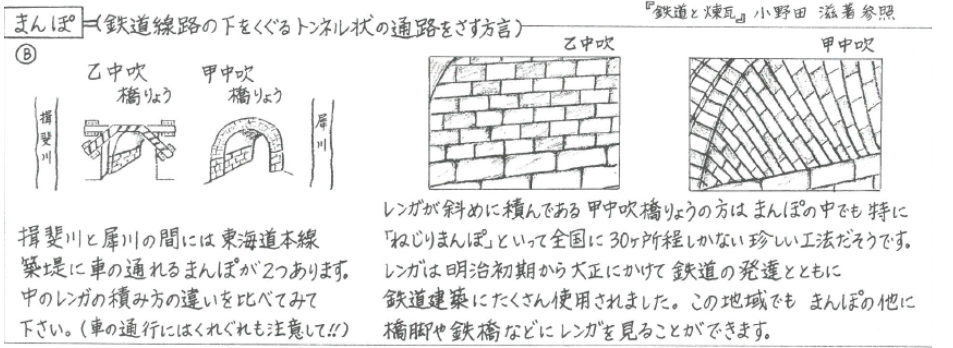 『鉄道と煉瓦』小野田 滋著 参照
まんぽ (鉄道線路の下をくぐるトンネル状の通路をさす方言)
Ⓑ
乙中吹
橋りょう
甲中吹
橋りょう
揖斐川
犀川
乙中吹
甲中吹
揖斐川と犀川の間には東海道本線
築堤に車の通れるまんぽが2つあります。
中のレンガの積み方の違いを比べてみて
下さい。(車の通行にはくれぐれも注意して!!)
レンガが斜めに積んである甲中吹橋りょうの方はまんぽの中でも特に
「ねじりまんぽ」といって全国に30ヶ所程しかない珍しい工法だそうです。
レンガは明治初期から大正にかけて鉄道の発達とともに
鉄道建築にたくさん使用されました。この地域でも まんぽの他に
橋脚や鉄橋などにレンガを見ることができます。